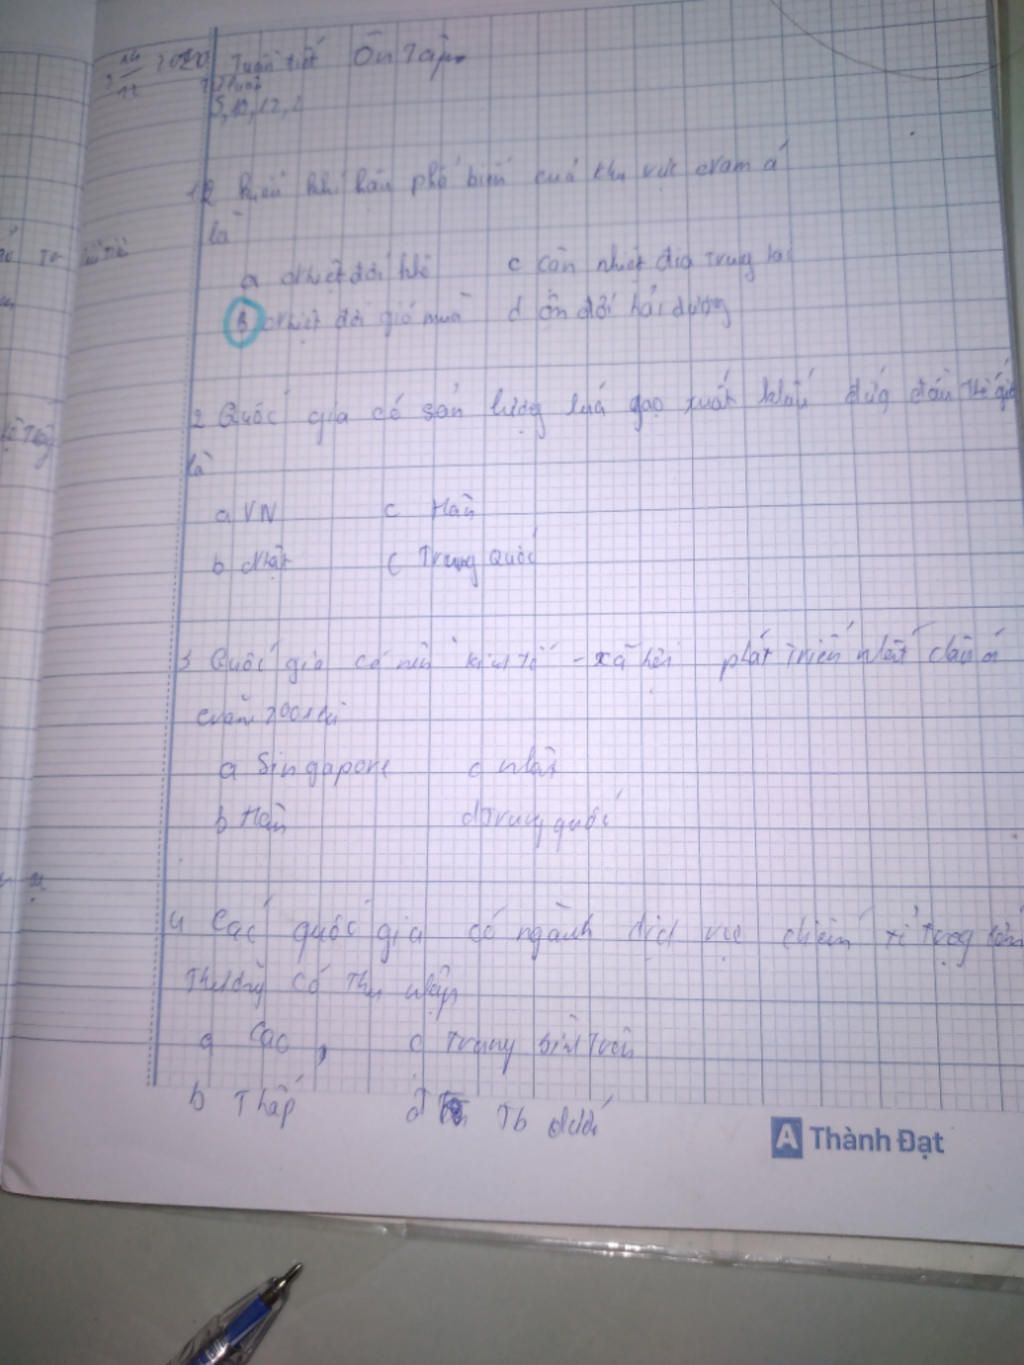 Tuần tiết Ôn Tập
5, 10, 12, 2
12 Kiểu khí hậu phổ biến của khu vực Nam á
là
a Nhiệt đới khô c Cận nhiệt địa trung hải
b Nhiệt đới gió mùa d ôn đới hải dương
2 Quốc gia có sản lượng lúa gạo xuất khẩu đứng đầu Thế giới
là
a VN c Hàn
b Nhật c Trung Quốc
3 Quốc gia có nền kinh tế - xã hội phát triển nhất châu á
năm 2001 là
a Singapore c nhật
b Hàn d Trung quốc
4 Các quốc gia có ngành dịch vụ chiếm tỉ trọng lớn
Thường có Thu nhập
a Cao, c Trung bình trên
b Thấp d Tb dưới
A Thành Đạt